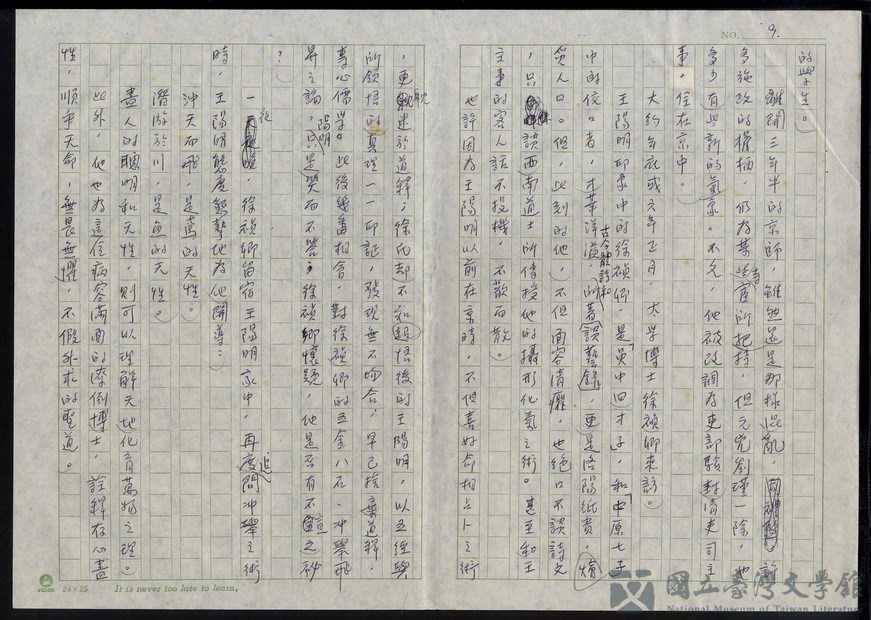 NO. 9.
的學生。
離開三年半的京師，雖然還是那樣混亂，許
多施政的權柄，仍為某些當宦所把持，但元兇劉瑾一除，也
多少有些新的氣象。不久，他被改調為吏部驗封清吏司主
事，住在京中。
大約年底或六年正月，太學博士徐禎卿來訪。
王陽明印象中的徐禎卿，是「吳中四才子」，和「中原七子」
中的佼佼者，才華洋溢，古今體詩和的著談藝錄，更是洛陽紙貴，燴
炙人口。但，此刻的他，不但面容清癯，也絕口不談詩文
，只談西南道士所傳授他的攝形化氣之術。甚至和王
主事的客人話不投機，不歡而散。
也許因為王陽明以前在京時，不但喜好命相占卜之術
，更耽迷於道釋；徐氏却不知超悟後的王陽明，以五經與
所領悟的真理一一印証，發現無不吻合，早已捨棄道釋，
專心儒學。此後幾番相會，對徐禎卿的五金八石、冲舉飛
昇之論，陽明只是笑而不答；徐禎卿懷疑，他是否有不宣之祕
？
一夜，徐禎卿留宿王陽明家中，再度追問冲舉之術
時，王陽明態度懇摯地為他開導：
冲天而飛，是鳶的天性。
潛游於川，是魚的天性。
盡人的聰明和天性，則可以理解天地化育萬物之理。
此外，他也為這位病容滿面的潦倒博士，詮釋存心盡
性，順乎天命，無畏無懼，不假外求的聖道。
24×25 It is never too late to learn.
國立臺灣文學館
National Museum of Taiwan Literature